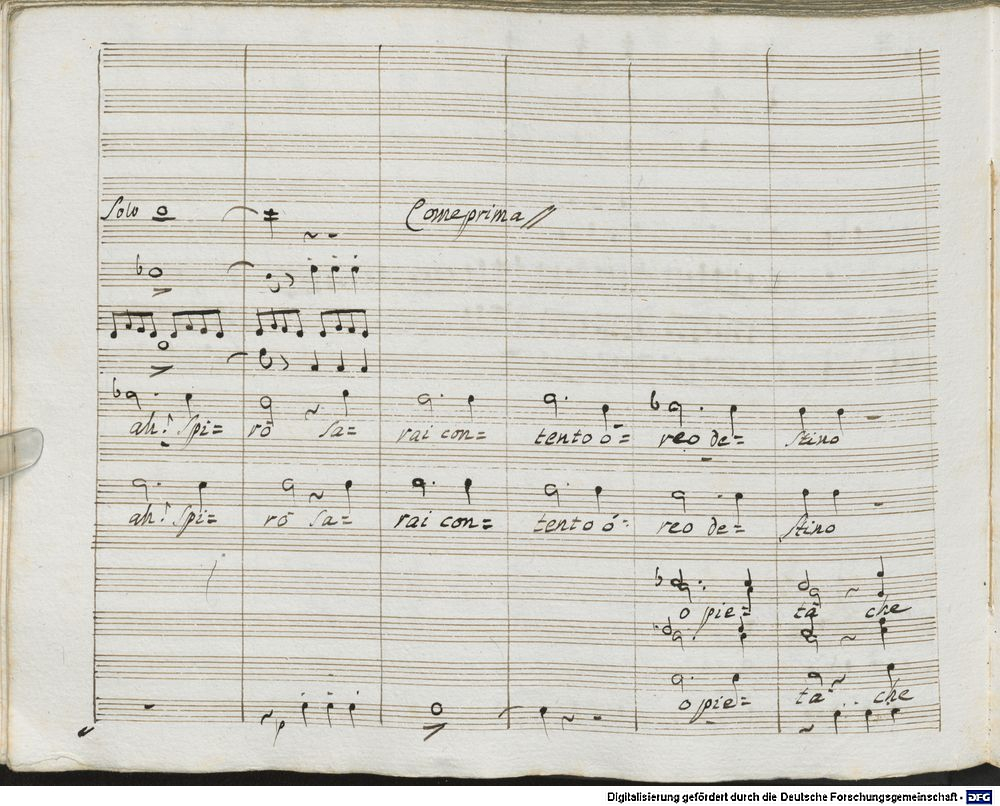 Solo Come prima //
ah! Spi= rò sa= rai con= tento ò= reo de= stino
ah! Spi= rò sa= rai con= tento ò= reo de= stino
o pie= tà che
p
o pie= tà .. che
Digitalisierung gefördert durch die Deutsche Forschungsgemeinschaft - DFG